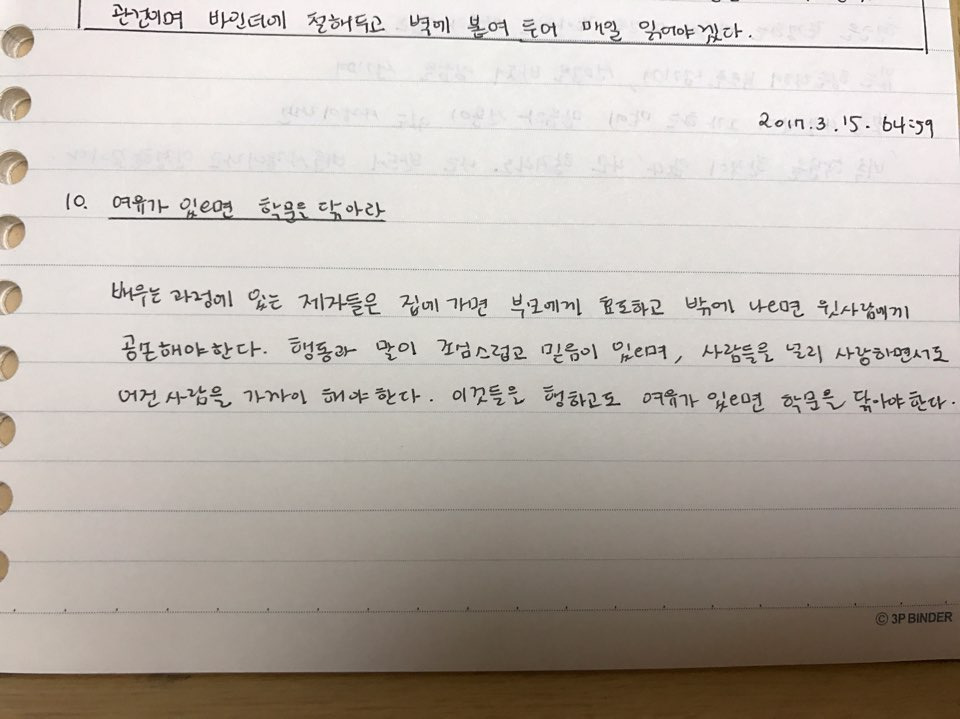 관건이며 바인더에 철해두고 벽에 붙여 두어 매일 읽어야겠다.
2017.3.15. 64:59
10. 여유가 있으면 학문을 닦아라
배우는 과정에 있는 제자들은 집에 가면 부모에게 효도하고 밖에 나오면 윗사람에게
공손해야한다. 행동과 말이 조심스럽고 믿음이 있으며, 사람들을 널리 사랑하면서도
어진 사람을 가까이 해야한다. 이것들을 행하고도 여유가 있으면 학문을 닦아야한다.
© 3P BINDER